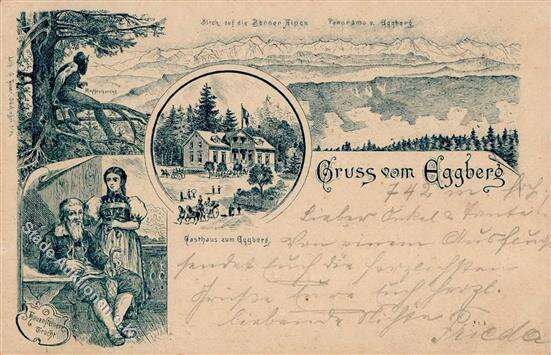 Blick auf die Berner Alpen Panorama v. Eggberg
Gruss vom Eggberg
742 m
Lieber Onkel & Tante!
Von einem Ausflug
sendet Euch die herzlichsten
Grüße Eure Euch herzl.
liebende Nichte Frieda
Gasthaus zum Eggberg.
Hauensteiner
Tracht